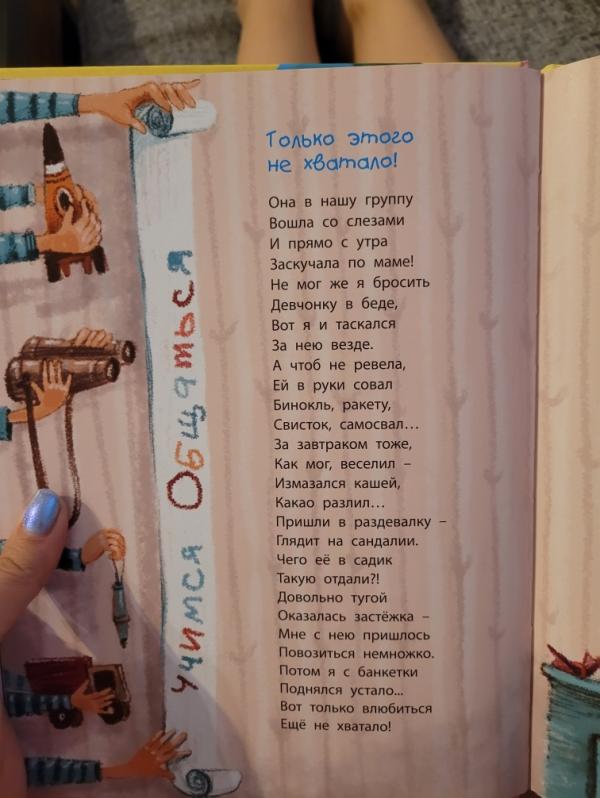 Только этого
не хватало!
Она в нашу группу
Вошла со слезами
И прямо с утра
Заскучала по маме!
Не мог же я бросить
Девчонку в беде,
Вот я и таскался
За нею везде.
А чтоб не ревела,
Ей в руки совал
Бинокль, ракету,
Свисток, самосвал…
За завтраком тоже,
Как мог, веселил –
Измазался кашей,
Какао разлил…
Пришли в раздевалку –
Глядит на сандалии.
Чего её в садик
Такую отдали?!
Довольно тугой
Оказалась застёжка –
Мне с нею пришлось
Повозиться немножко.
Потом я с банкетки
Поднялся устало...
Вот только влюбиться
Ещё не хватало!
учимся Общаться